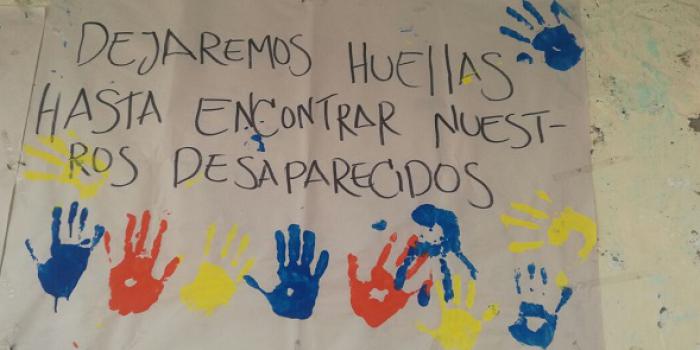 DEJAREMOS HUEllAS
HASTA ENCONTRAR NUEST-
ROS DESAPARECIDOS